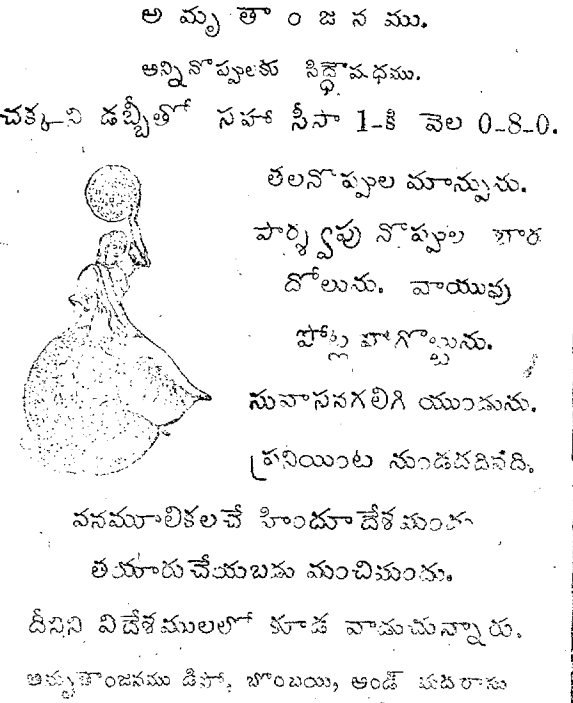 అ మృ తా ం జ న ము.
అన్నినొప్పులకు సిద్ధౌషధము.
చక్కని డబ్బీతో సహా సీసా 1-కి వెల 0-8-0.
తలనొప్పుల మాన్పును.
పార్శ్వపు నొప్పుల బార
దోలును. వాయువు
పోట్ల పోగొట్టును.
సువాసనగలిగి యుండును.
ప్రతియింట నుండదగినది.
వనమూలికలచే హిందూదేశమందు
తయారుచేయబడు మంచిమందు.
దీనిని విదేశములలో కూడ వాడుచున్నారు.
అమృతాంజనము డిపో, బొంబయి, అండ్ మదరాసు